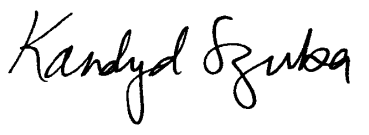 Kandyd Szuba